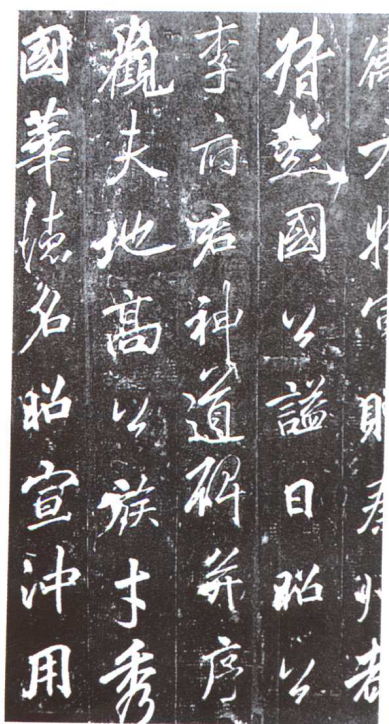 衛大將軍贈秦州都
督彭國公謚曰昭公
李府君神道碑并序
觀夫地高公族才秀
國華德名昭宣沖用